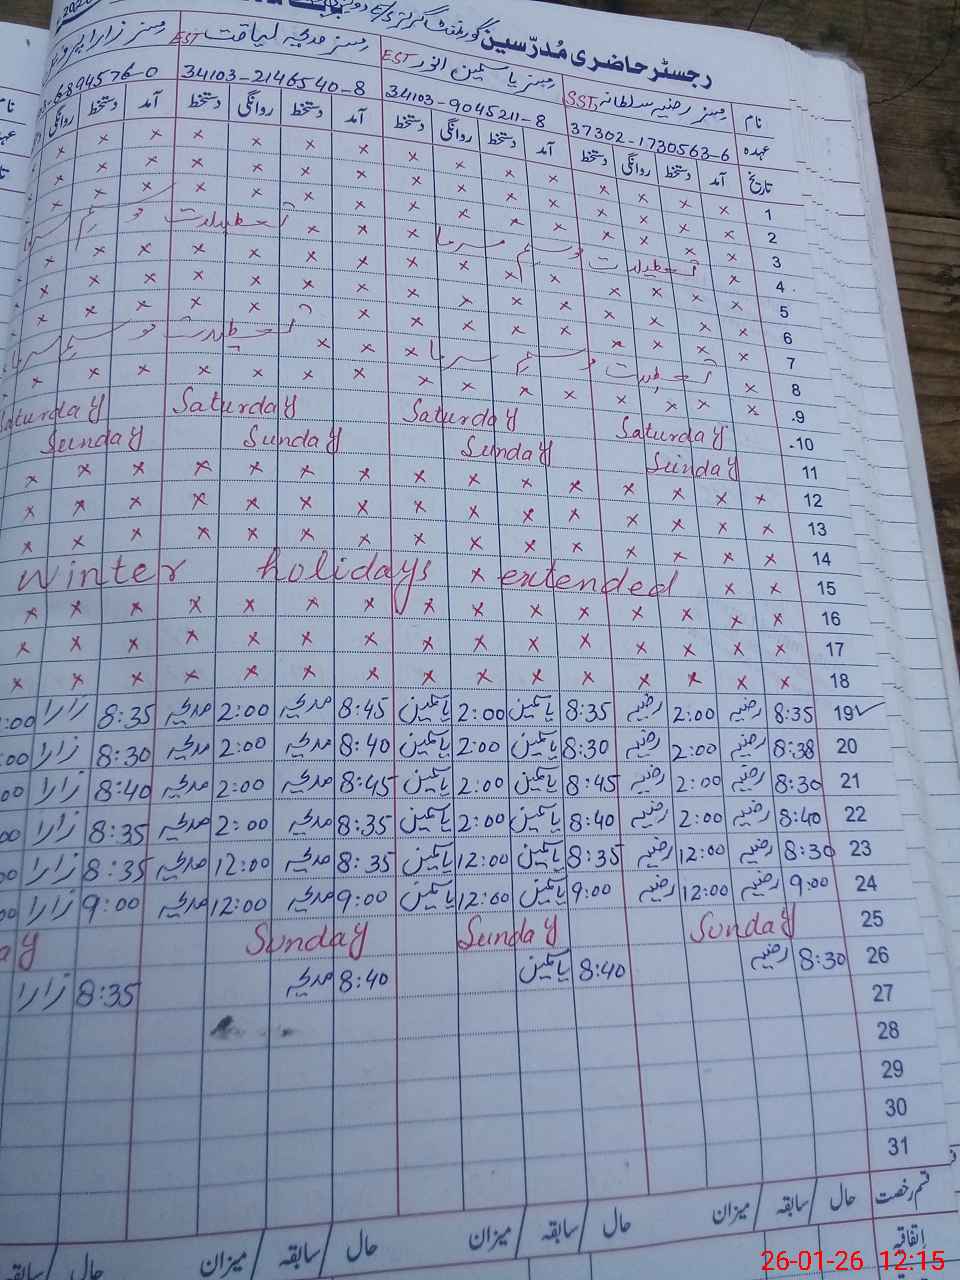 رجسٹر حاضری مُدرّسین گورنمنٹ گرلز
نام مسز رضیہ سلطانہ SST مسز یاسمین انور EST مسز مدیحہ لیاقت EST مسز زارا
عہدہ 37302-1730563-6 34103-9045211-8 34103-2146540-8 6894576-0
تاریخ آمد دستخط روانگی دستخط آمد دستخط روانگی دستخط آمد دستخط روانگی دستخط آمد دستخط روانگی
1 × × × × × × × × × × × × × × ×
2 × × × × × × × × × × × × × × ×
3 × × × × × × × × × × × × × × ×
4 × تعطیلات موسم سرما × × × تعطیلات موسم
5 × × × × × × × × × × × × × × ×
6 × × × × × × × × × × × × × × ×
7 × × × × × × × × × × × × × × ×
8 × تعطیلات موسم سرما × × × تعطیلات موسم سرما
9 × × × × × × × × × × × × × × ×
10 Saturday Saturday Saturday Saturday
11 Sunday Sunday Sunday Sunday
12 × × × × × × × × × × × × × × ×
13 × × × × × × × × × × × × × × ×
14 × × × × × × × × × × × × × × ×
15 winter holidays × extended × ×
16 × × × × × × × × × × × × × × ×
17 × × × × × × × × × × × × × × ×
18 × × × × × × × × × × × × × × ×
19 ✓ 8:35 رضیہ 2:00 رضیہ 8:35 یاسمین 2:00 یاسمین 8:45 مدیحہ 2:00 مدیحہ 8:35 زارا :00
20 8:38 رضیہ 2:00 رضیہ 8:30 یاسمین 2:00 یاسمین 8:40 مدیحہ 2:00 مدیحہ 8:30 زارا :00
21 8:30 رضیہ 2:00 رضیہ 8:45 یاسمین 2:00 یاسمین 8:45 مدیحہ 2:00 مدیحہ 8:40 زارا 00
22 8:40 رضیہ 2:00 رضیہ 8:40 یاسمین 2:00 یاسمین 8:35 مدیحہ 2:00 مدیحہ 8:35 زارا 00
23 8:30 رضیہ 12:00 رضیہ 8:35 یاسمین 12:00 یاسمین 8:35 مدیحہ 12:00 مدیحہ 8:35 زارا 00
24 9:00 رضیہ 12:00 رضیہ 9:00 یاسمین 12:00 یاسمین 9:00 مدیحہ 12:00 مدیحہ 9:00 زارا 00
25 Sunday Sunday Sunday ay
26 8:30 رضیہ 8:40 یاسمین 8:40 مدیحہ 8:35 زارا
27
28
29
30
31
قسم رخصت حال / سابقہ / میزان حال / سابقہ / میزان حال / سابقہ / میزان حال / سابقہ
اتفاقیہ
26-01-26 12:15